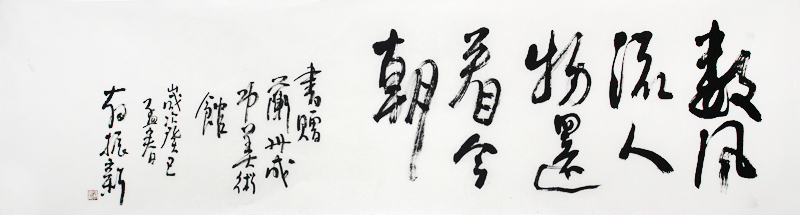 數風
流人
物還
看今
朝
書贈
蘭州成
功美術
館
歲次癸巳
孟春
翁振新